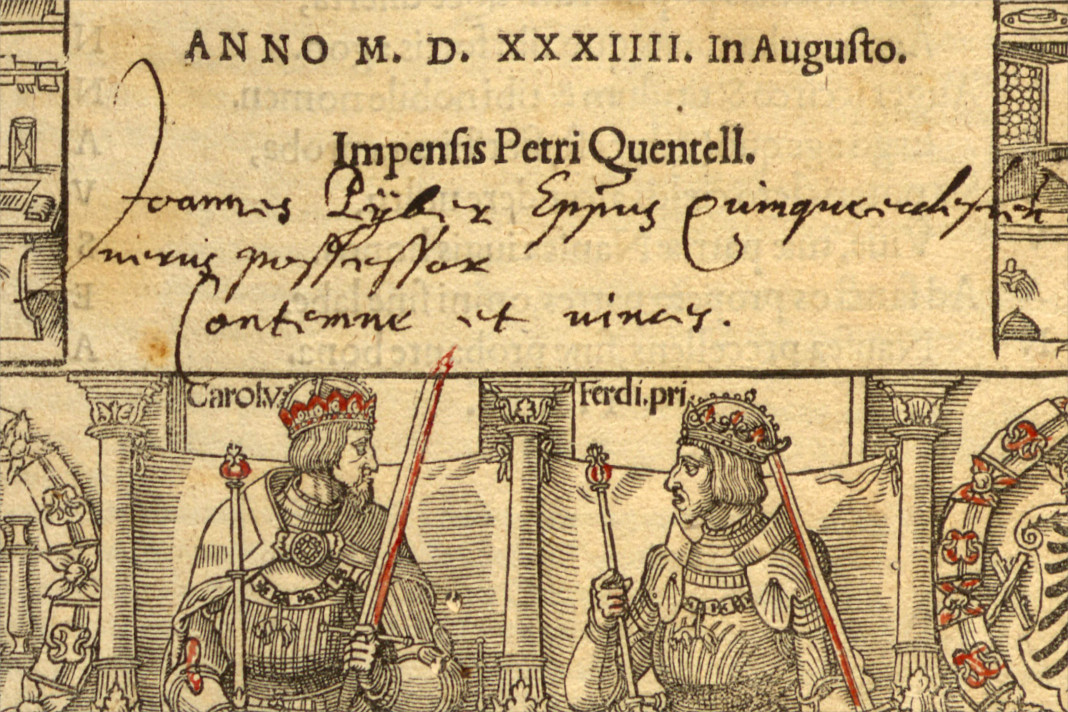 ANNO M. D. XXXIIII. In Augusto.
Impensis Petri Quentell.
Joannes Pyber Eppus Quinqueecclesien
verus possessor
Contemne et vinces.
Carolv
Ferdi.pri.